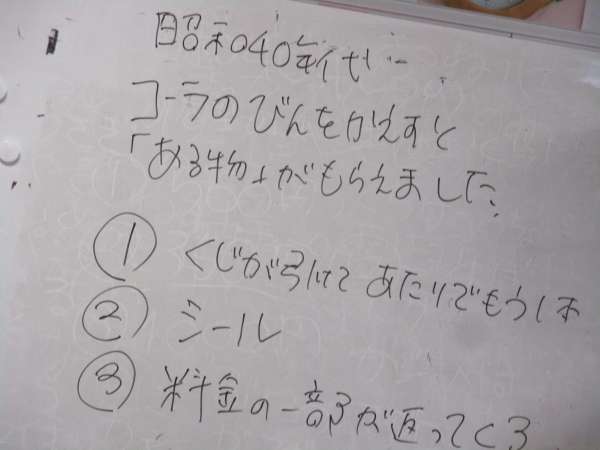 昭和40年代…
コーラのびんをかえすと
「ある物」がもらえました。
① くじが引けて あたりでもう1本
② シール
③ 料金の一部が返ってくる